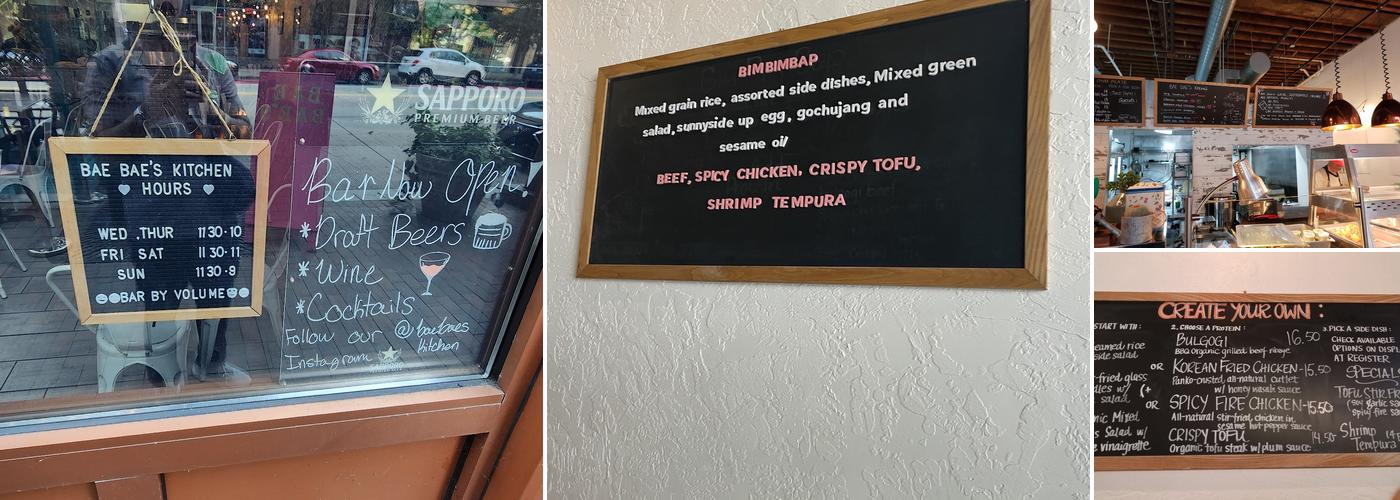 BAE BAE'S KITCHEN
HOURS
WED ,THUR 11 30-10
FRI SAT 11 30-11
SUN 11 30-9
BAR BY VOLUME
BAE
BAE'S
SAPPORO
PREMIUM BEER
Bar Now Open!
* Draft Beers
* Wine
* Cocktails
Follow our @baebaes
kitchen
Instagram
BIMBIMBAP
Mixed grain rice, assorted side dishes, Mixed green
salad, sunnyside up egg, gochujang and
sesame oil
BEEF, SPICY CHICKEN, CRISPY TOFU,
SHRIMP TEMPURA
CREATE YOUR OWN :
START WITH :
eamed rice
side salad
OR
-fried glass
salad
OR
nic Mixed
s Salad w/
e vinaigrette
2. CHOOSE A PROTEIN :
BULGOGI 16.50
BBQ organic grilled beef ribeye
KOREAN FRIED CHICKEN-15.50
Panko-crusted, all-natural cutlet
w/ honey wasabi sauce
SPICY FIRE CHICKEN-15.50
All-natural stir-fried chicken in
sesame hot-pepper sauce
CRISPY TOFU 14.50
Organic tofu steak w/ plum sauce
3. PICK A SIDE DISH :
CHECK AVAILABLE
OPTIONS ON DISPL
AT REGISTER
SPECIALS
TOFU STIR FR
(soy garlic sa
spicy fire sa
Shrimp
Tempura